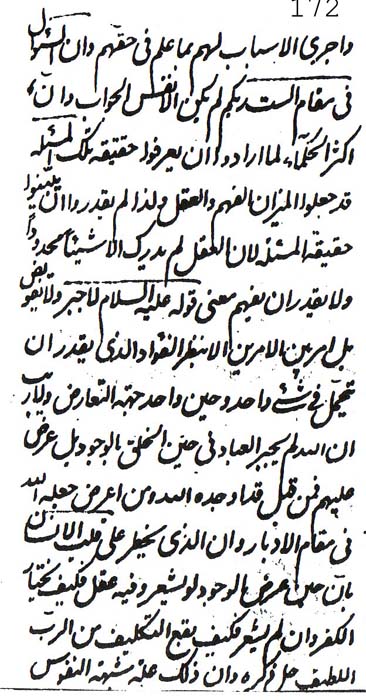 172
واجرى الاسباب لهم بما علم فى حقهم وان السؤال
فى مقام الست بربكم لم يكن الا نفس الجواب وان
اكثر الحكماء لما ارادوا ان يعرفوا حقيقة تلك المسئلة
قد جعلوا الميزان الفهم والعقل ولذا لم يقدروا ان يبينوا
حقيقة المسئلة لان العقل لم يدرك الا شيئاً محدوداً
ولا يقدر ان يفهم معنى قوله عليه السلام لا جبر ولا تفويض
بل امر بين الامرين الا بنظر الفؤاد الذى يقدر ان
يتحمل فى شئ واحد وحين واحد جهة التعارض ولا ريب
ان الله لم يجبر العباد فى حين الخلق بالوجود بل عرض
عليهم فمن قبل قد اوجده الله ومن اعرض جعله الله
فى مقام الادبار وان الذى يخطر على قلب الانسان
بان حين عرض الوجود لو لشعر وفيه عقل فكيف يختار
الكفر وان لم يشعر فكيف يقع التكليف من الرب
اللطيف جل ذكره وان ذلك علة شبهة النفوس